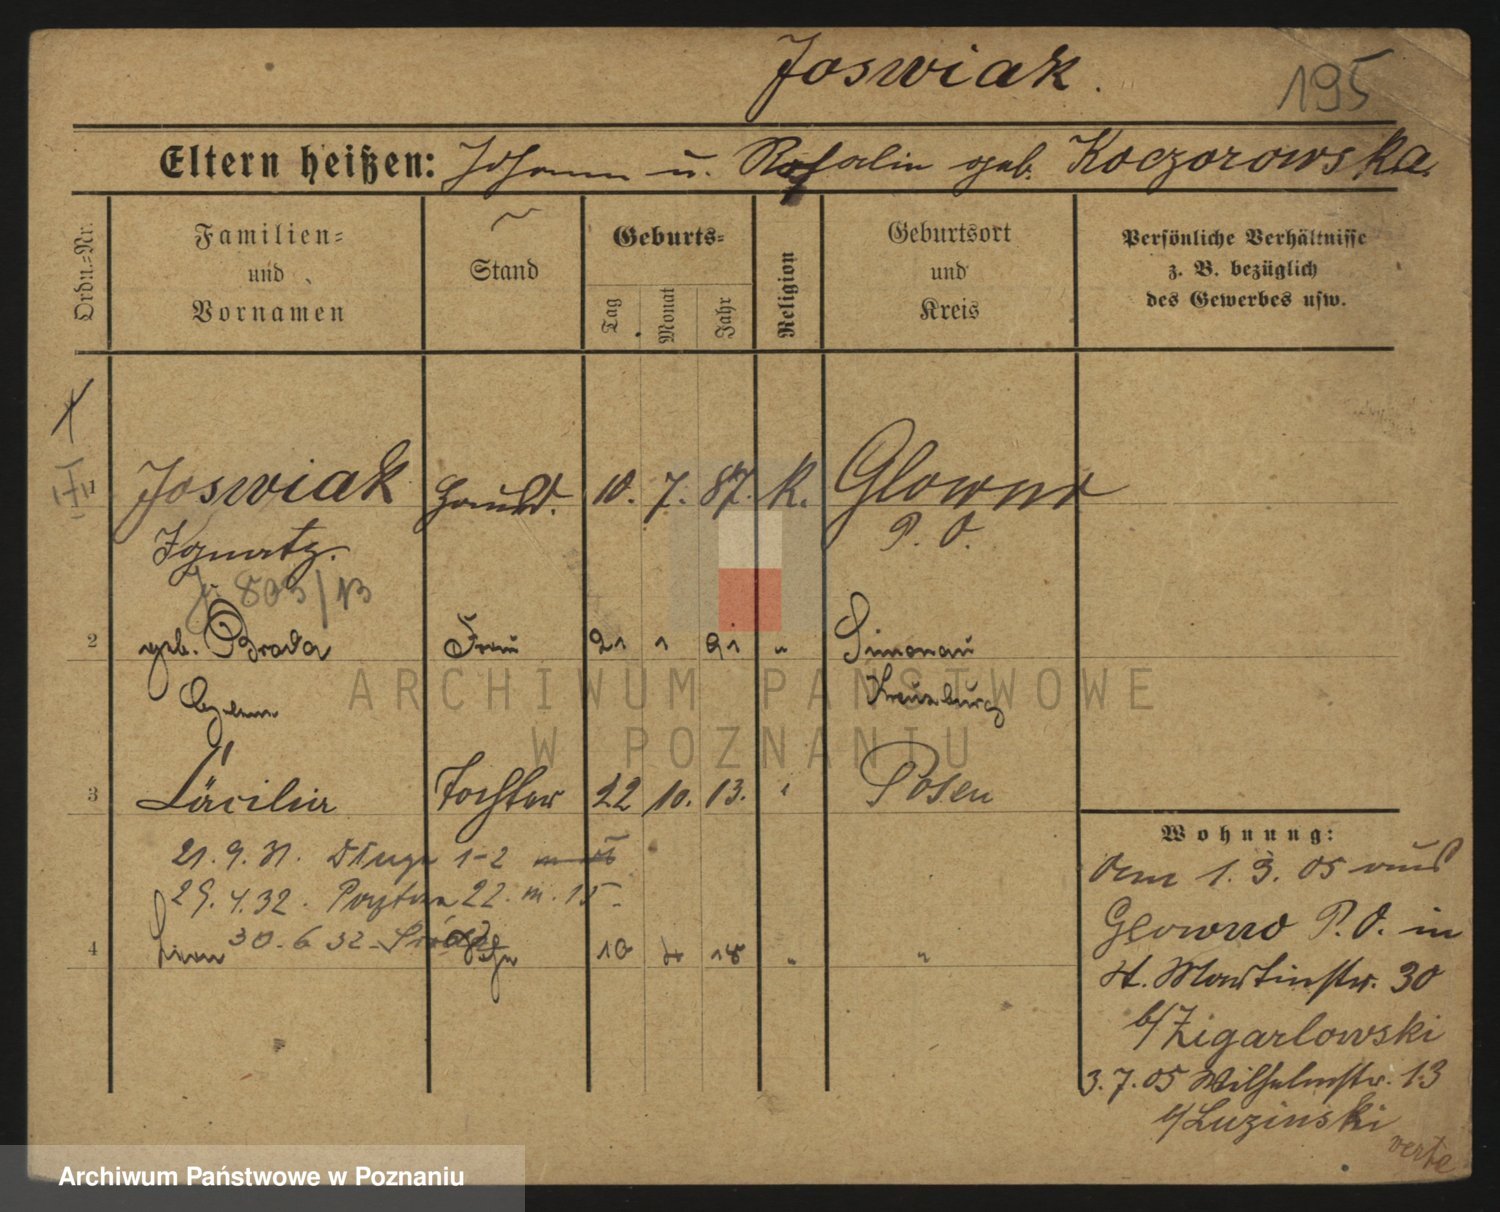 Joswiak.
195
Eltern heißen: Johann u. Rosalie geb. Koczorowska.
Ordn.-Nr.
Familien-
und
Vornamen
Stand
Geburts-
Tag
Monat
Jahr
Religion
Geburtsort
und
Kreis
Persönliche Verhältnisse
z. B. bezüglich
des Gewerbes usw.
1 Joswiak 10. 7. 87. K. Glowno
Ignatz. P. O.
803/13
2 geb. Broda Frau 21 1 91 " Simonau
Kreuzburg
3 Cäcilia Tochter 22 10. 13. " Posen
21. 9. 31. Długa 1-2
29. 4. 32. 22. m. 15
30. 6 32
4 10 4 18 " "
Wohnung:
Am 1. 3. 05 aus
Glowno P. O. in
St. Martinstr. 30
b/Zigarlowski
3. 7. 05 Wilhelmstr. 13
b/Luzinski
verte
ARCHIWUM PAŃSTWOWE
W POZNANIU
Archiwum Państwowe w Poznaniu